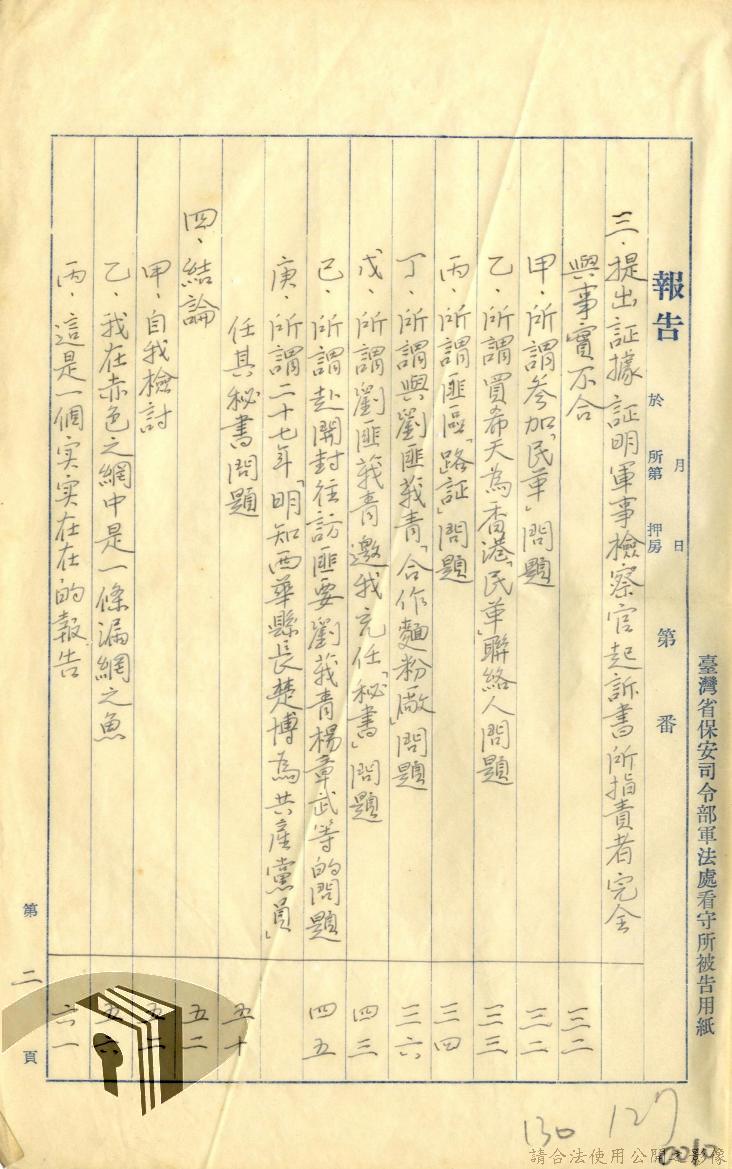 臺灣省保安司令部軍法處看守所被告用紙
報告
於
所第
押房
月
日
第
番
三．提出証據証明軍事檢察官起訴書所指責者完全
與事實不合
三二
甲．所謂參加「民革」問題
三二
乙．所謂買希天為香港「民革」聯絡人問題
三三
丙．所謂匪區「路証」問題
三四
丁．所謂與劉匪莪青「合作麵粉廠」問題
三六
戊．所謂劉匪莪青邀我充任「秘書」問題
四三
己．所謂赴開封往訪匪要劉莪青楊章武等的問題
四五
庚．所謂二十七年「明知西華縣長楚博為共產黨員」
任其秘書問題
五十
四．結論
五二
甲．自我檢討
五二
乙．我在赤色之網中是一條漏網之魚
五六
丙．這是一個实实在在的報告
六一
第二頁
130
127
請合法使用公開之影像